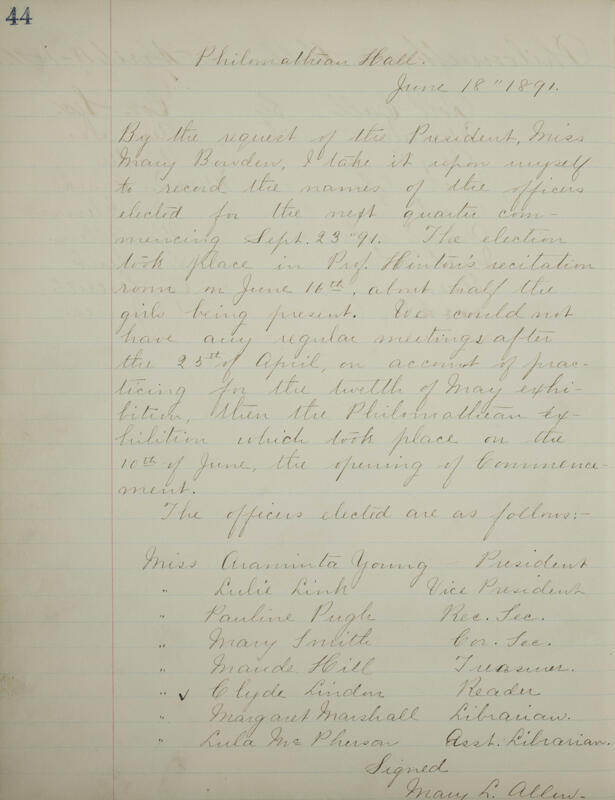 44
Philomathean Hall.
June 18" 1891.
By the request of the President, Miss
Mary Bowden, I take it upon myself
to record the names of the officers
elected for the next quarter com-
mencing Sept. 23" 91. The election
took place in Prof. Hinton's recitation
room on June 16th, about half the
girls being present. We could not
have any regular meetings after
the 25th of April, on account of prac-
ticing for the twelth of May exhi-
bition, then the Philomathean ex-
hibition which took place on the
10th of June, the opening of Commence-
ment.
The officers elected are as follows:-
Miss Araminta Young - President
" Lulie Link Vice President
" Pauline Pugh Rec. Sec.
" Mary Smith Cor. Sec.
" Maude Hill Treasurer.
" ✓ Clyde Lindon Reader
" Margaret Marshall Librarian.
" Lula McPherson Asst. Librarian.
Signed
Mary L. Allen.